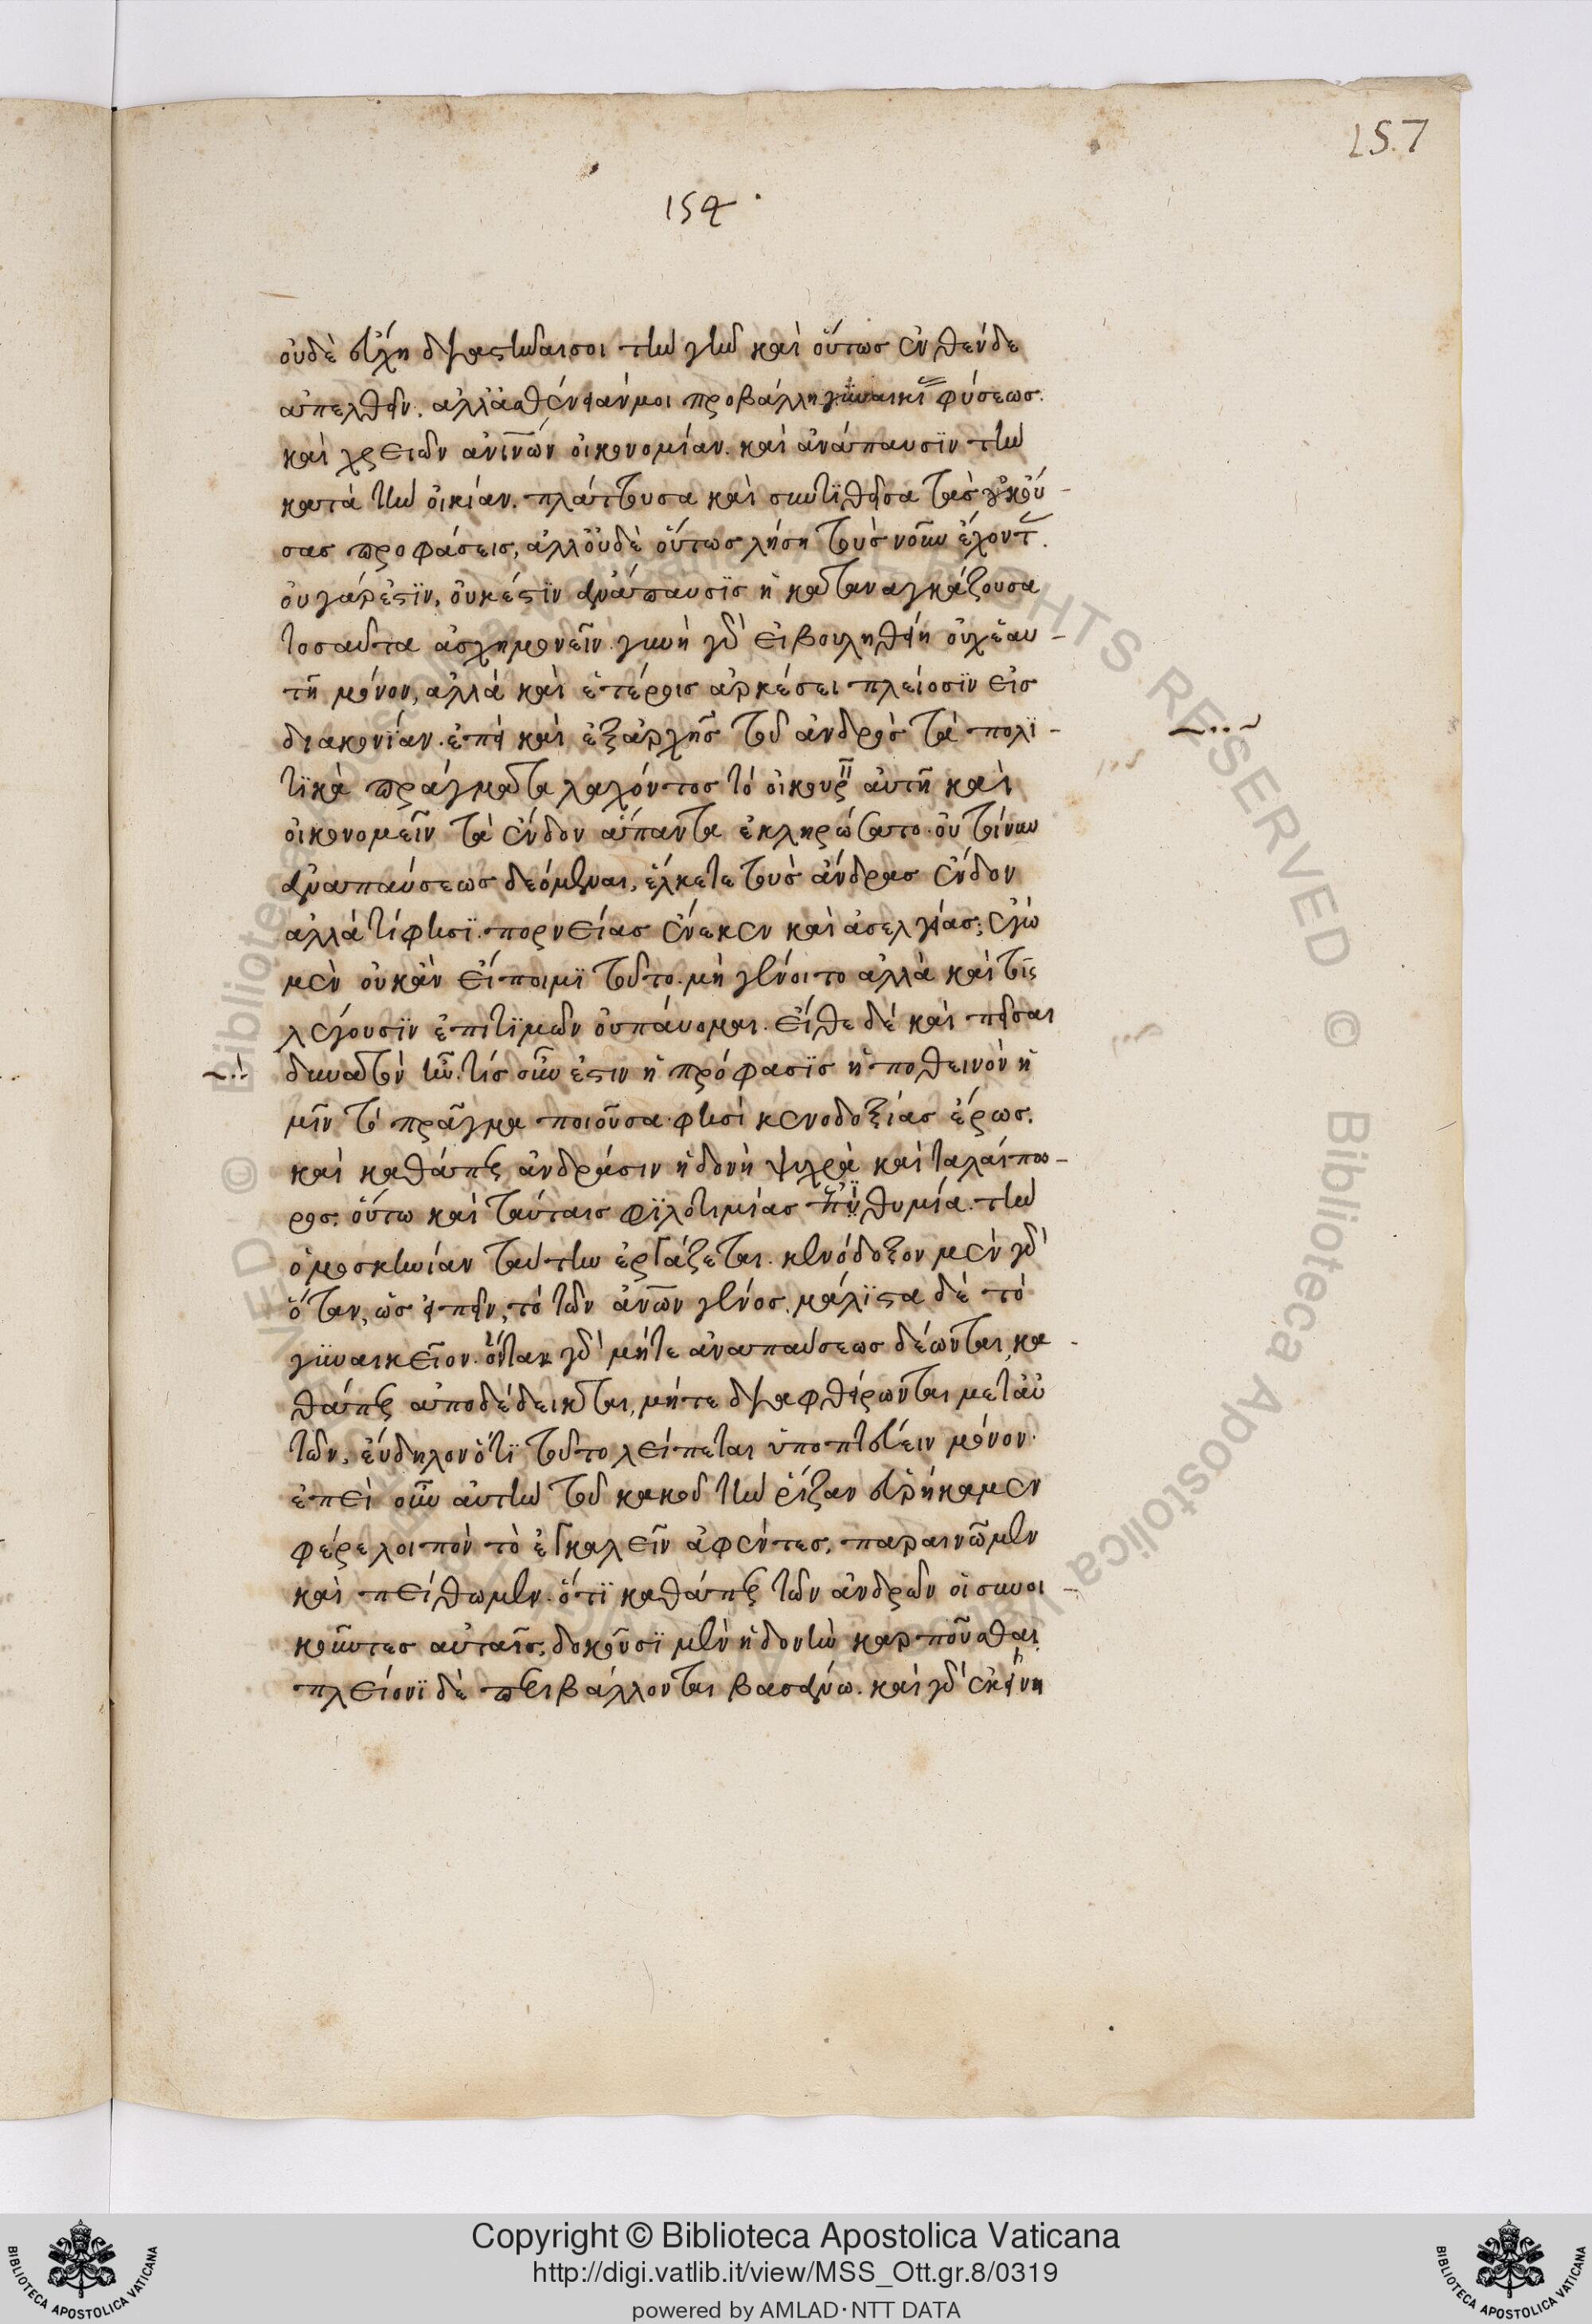 157
154.
οὐδὲ εἴχη διαστῆναι σοι τὴν γῆν καὶ οὕτως ἐνθένδε
ἀπελθεῖν. ἀλλ' ἀσθένειάν μοι προβάλλῃ γυναικὶ φύσεως.
καὶ χρειῶν ἀν̅ν̅ων οἰκονομίαν. καὶ ἀνάπαυσϊν τὴν
κατὰ τὴν οἰκίαν. πλάττουσα καὶ συντϊθεῖσα τὰς οὐκ οὔ-
σας προφάσεις, ἀλλ' οὐδὲ οὕτως λήσῃ τοὺς νοῦν ἔχοντ.
οὐ γάρ ἐστϊν, οὐκ ἔστϊν ἀνάπαυσϊς ἡ καταναγκάζουσα
τοσαῦτα ἀσχημονεῖν. γυνὴ γὰρ εἰ βουληθείη οὐχ ἑαυ-
τῇ μόνον, ἀλλὰ καὶ ἑτέροις ἀρκέσει πλείοσϊν εἰς
διακονίαν. ἐπεὶ καὶ ἐξ ἀρχῆς τοῦ ἀνδρὸς τὰ πολϊ-
τϊκὰ πράγματα λαχόντος τὸ οἰκουρ αὐτὴ καὶ
οἰκονομεῖν τὰ ἔνδον ἅπαντα ἐκληρώσατο. οὐ τοίνυν
ἀναπαύσεως δεόμεναι, ἕλκετε τοὺς ἄνδρας ἔνδον
ἀλλὰ τί φησϊ. πορνείας ἕνεκεν καὶ ἀσελγείας; ἐγὼ
μὲν οὐκ ἂν εἴποιμϊ τοῦτο. μὴ γένοιτο ἀλλὰ καὶ τοῖς
λέγουσϊν ἐπιτϊμῶν οὐ παύομαι. εἴθε δὲ καὶ πεῖσαι
δυνατὸν ἦν. τίς οὖν ἐστιν ἡ πρόφασϊς ἡ ποθεινὸν ἡ
μῖν τὸ πρᾶγμα ποιοῦσα. φησὶ κενοδοξίας ἔρως.
καὶ καθάπερ ἀνδράσιν ἡδονὴ ψυχρὰ καὶ ταλαίπω-
ρος. οὕτω καὶ ταύταις φϊλοτιμίας ἐπϊθυμία. τὴν
ὁμοσκηνίαν ταύτην ἐργάζεται. κενόδοξον μὲν γὰρ
ὅταν, ὡς εἰπεῖν, τὸ τῶν ἀν̅ων γένος. μάλϊστα δὲ τὸ
γϋναικεῖον. ὅταν γὰρ μήτε ἀναπαύσεως δέωνται, κα-
θάπερ ἀποδέδεικται, μήτε διαφθείρωνται μετ' αὐ
τῶν, εὔδηλον ὅτϊ τοῦτο λείπεται ὑποπτεύειν μόνον.
ἐπεὶ οὖν αὐτὴν τοῦ κακοῦ τὴν ῥίζαν εὑρήκαμεν
φέρε λοιπὸν τὸ ἐγκαλεῖν ἀφέντες, παραινῶμεν
καὶ πείθωμεν. ὅτϊ καθάπερ τῶν ἀνδρῶν οἱ συνοι-
κοῦντες αὐταῖς, δοκοῦσϊ μὲν ἡδονὴν καρποῦσθαι
πλείονϊ δὲ περιβάλλονται βασάνω. καὶ γὰρ ἐκείνη
Copyright © Biblioteca Apostolica Vaticana
http://digi.vatlib.it/view/MSS_Ott.gr.8/0319
powered by AMLAD·NTT DATA